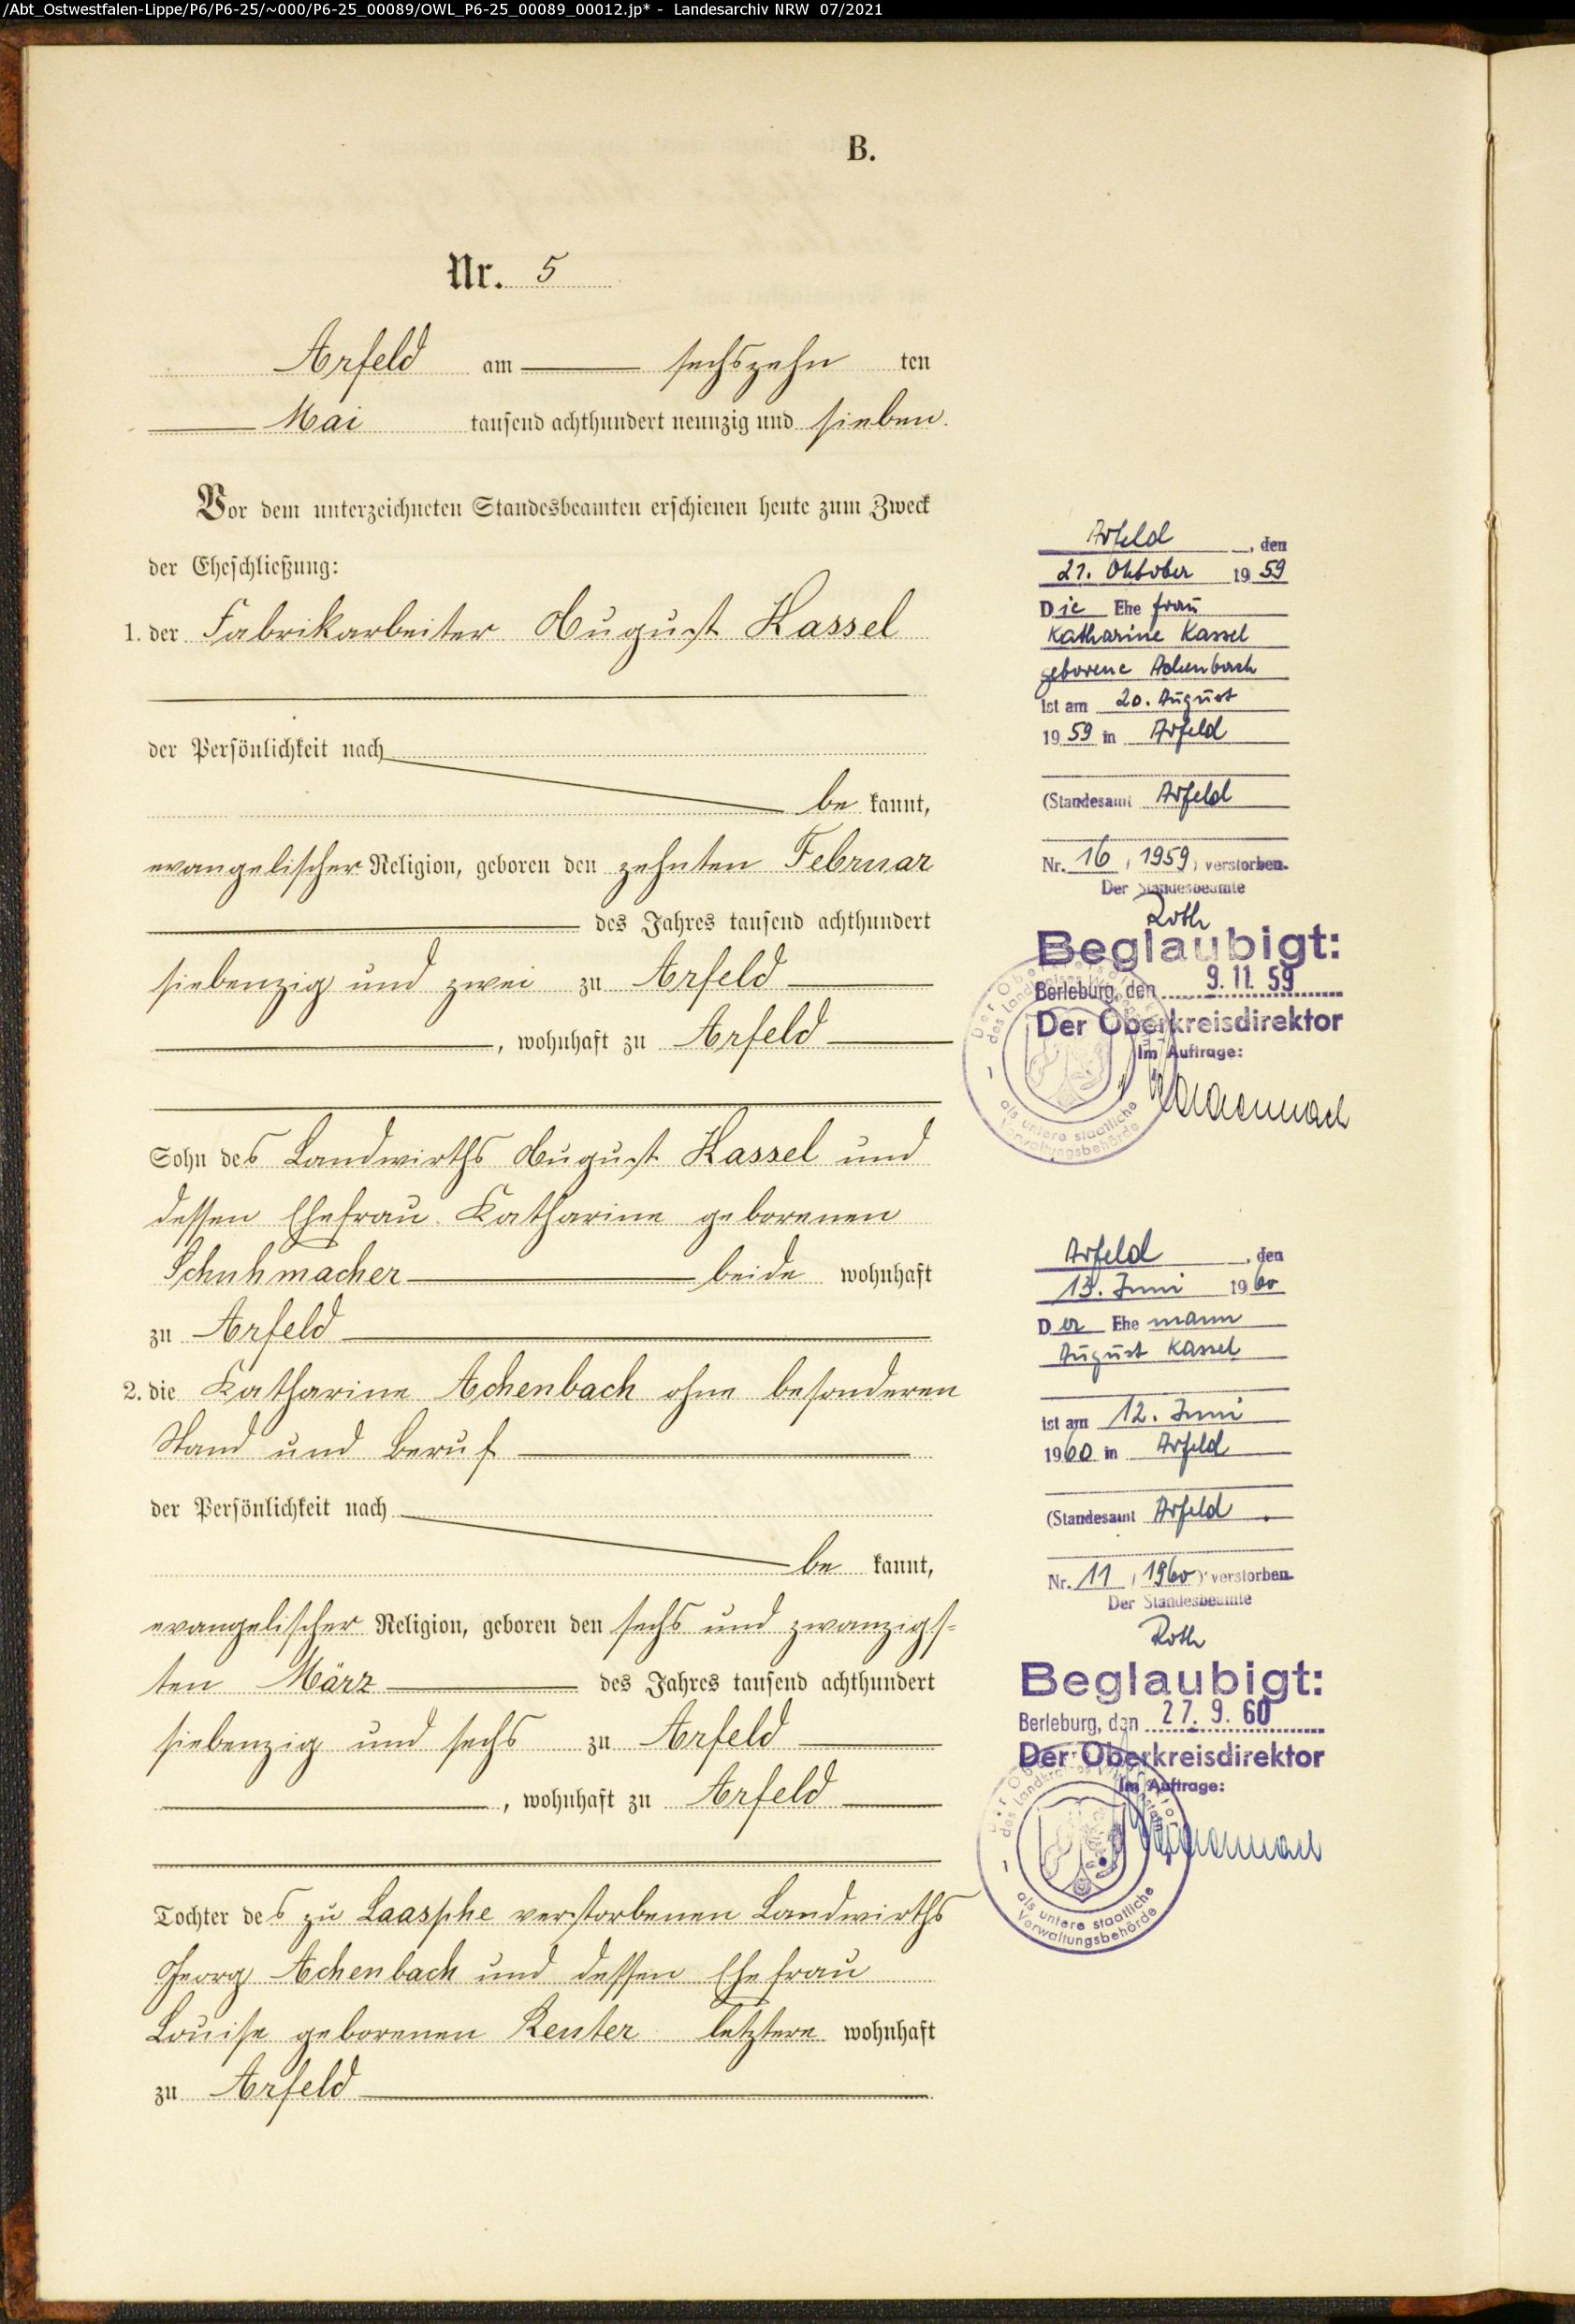 /Abt_Ostwestfalen-Lippe/P6/P6-25/~000/P6-25_00089/OWL_P6-25_00089_00012.jp* - Landesarchiv NRW 07/2021
B.
Nr. 5
Arfeld am sechszehn ten
Mai tausend achthundert neunzig und sieben.
Vor dem unterzeichneten Standesbeamten erschienen heute zum Zweck
der Eheschließung:
1. der Fabrikarbeiter August Kassel
der Persönlichkeit nach
be kannt,
evangelischer Religion, geboren den zehnten Februar
des Jahres tausend achthundert
siebenzig und zwei zu Arfeld
, wohnhaft zu Arfeld
Sohn des Landwirths August Kassel und
dessen Ehefrau Katharine geborenen
Schuhmacher beide wohnhaft
zu Arfeld
2. die Katharine Achenbach ohne besonderen
Stand und Beruf
der Persönlichkeit nach
be kannt,
evangelischer Religion, geboren den sechs und zwanzigs-
ten März des Jahres tausend achthundert
siebenzig und sechs zu Arfeld
, wohnhaft zu Arfeld
Tochter des zu Laasphe verstorbenen Landwirths
Georg Achenbach und dessen Ehefrau
Louise geborenen Reuter letztere wohnhaft
zu Arfeld
Arfeld, den
21. Oktober 1959
Die Ehe frau
Katharine Kassel
geborene Achenbach
ist am 20. August
1959 in Arfeld
(Standesamt Arfeld
Nr. 16 / 1959) verstorben.
Der Standesbeamte
Roth
Beglaubigt:
Berleburg, den 9. 11. 59
Der Oberkreisdirektor
Im Auftrage:
Der Oberkreisdirektor
des Landkreises Wittgenstein
als untere staatliche
Verwaltungsbehörde
Arfeld, den
13. Juni 1960
Der Ehe mann
August Kassel
ist am 12. Juni
1960 in Arfeld
(Standesamt Arfeld.
Nr. 11 / 1960) verstorben.
Der Standesbeamte
Roth
Beglaubigt:
Berleburg, den 27. 9. 60
Der Oberkreisdirektor
Im Auftrage:
Der Oberkreisdirektor
des Landkreises Wittgenstein
als untere staatliche
Verwaltungsbehörde